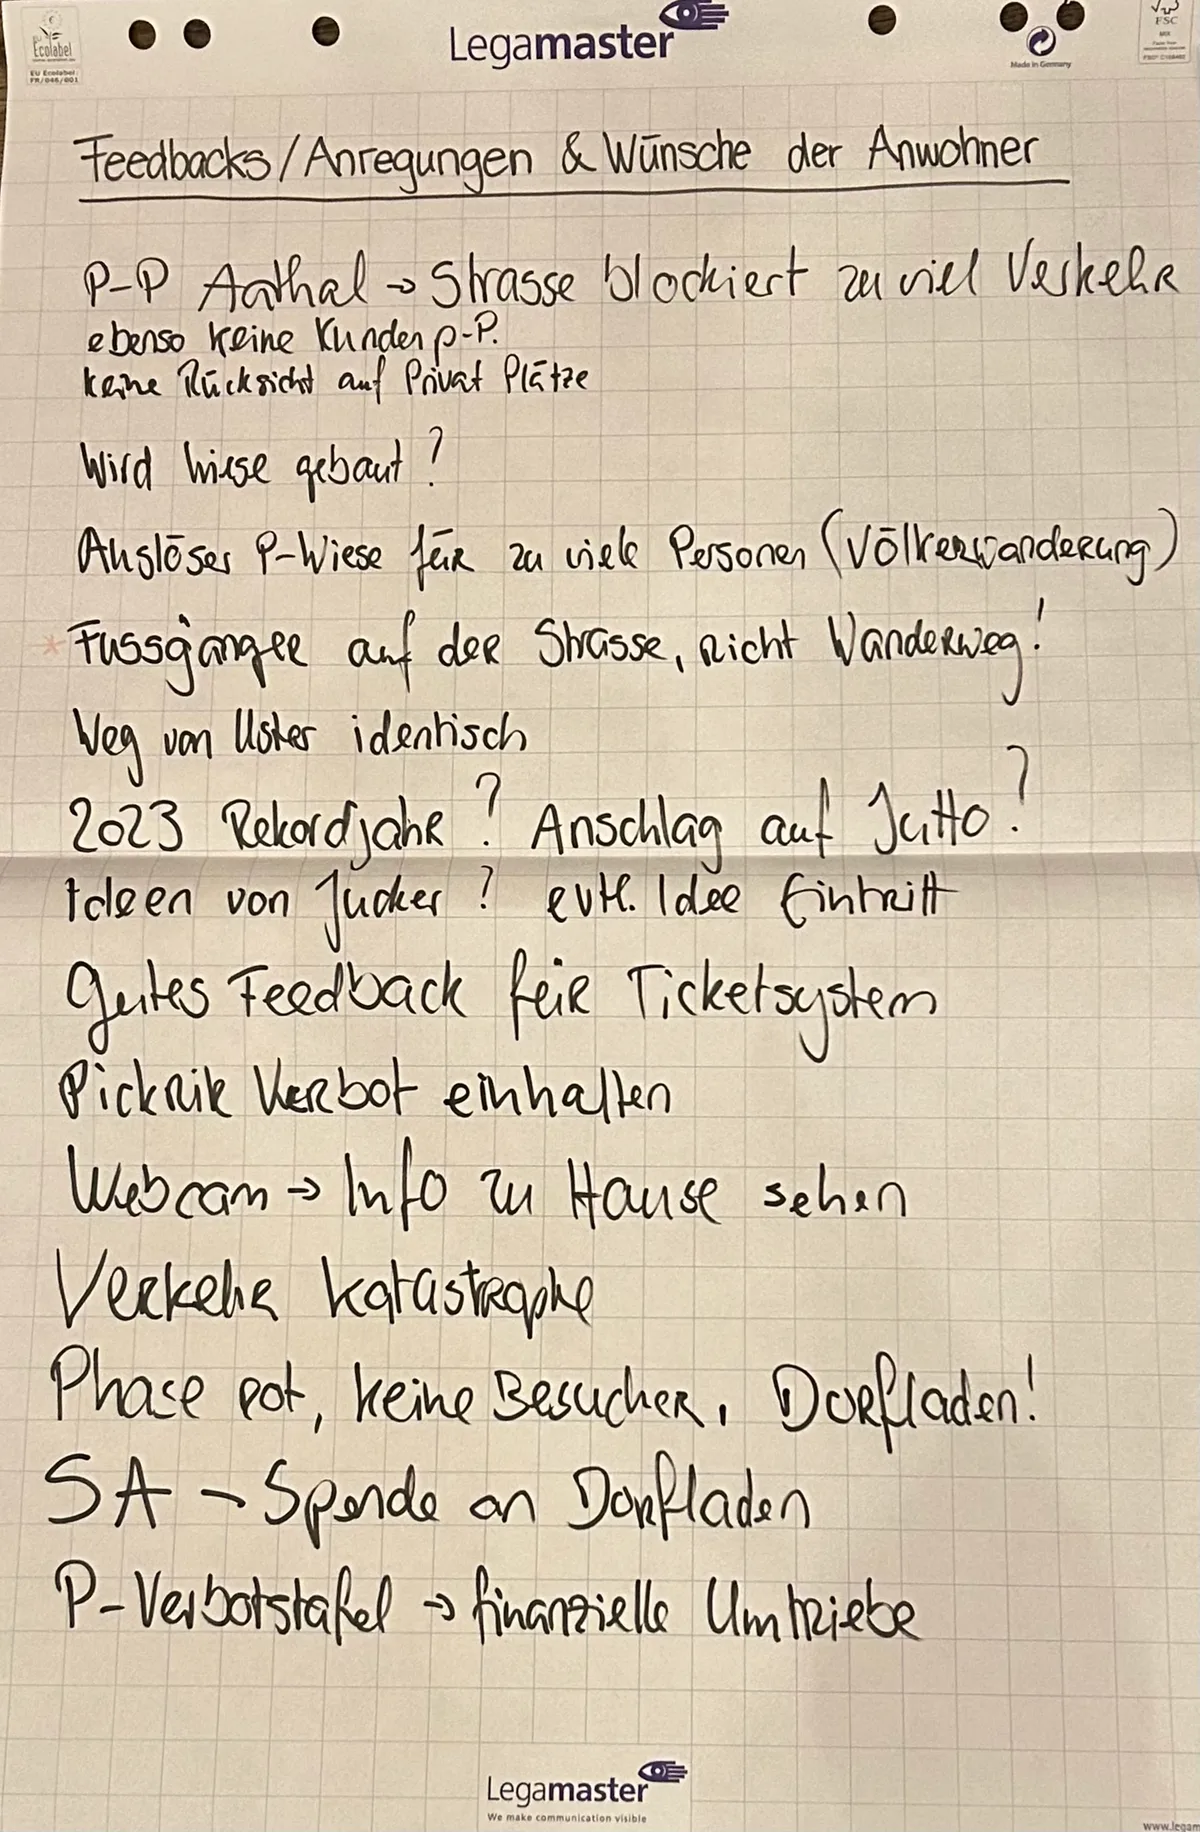 EU Ecolabel
EU Ecolabel:
FR/046/001
Legamaster
Made in Germany
FSC
MIX
Feedbacks/Anregungen & Wünsche der Anwohner
P-P Aathal → Strasse blockiert zu viel Verkehr
ebenso keine Kunden p-P.
keine Rücksicht auf Privat Plätze
Wird Wiese gebaut?
Auslöser P-Wiese für zu viele Personen (Völkerwanderung)
* Fussgänger auf der Strasse, nicht Wanderweg!
Weg von Uster identisch
2023 Rekordjahr? Anschlag auf Jutto?
Ideen von Jucker? evtl. Idee Eintritt
gutes Feedback für Ticketsystem
Picknik Verbot einhalten
Webcam → Info zu Hause sehen
Verkehr Katastrophe
Phase rot, keine Besucher, Dorfladen!
SA → Spende an Dorfladen
P-Verbotstafel → finanzielle Umtriebe
Legamaster
We make communication visible
www.legam